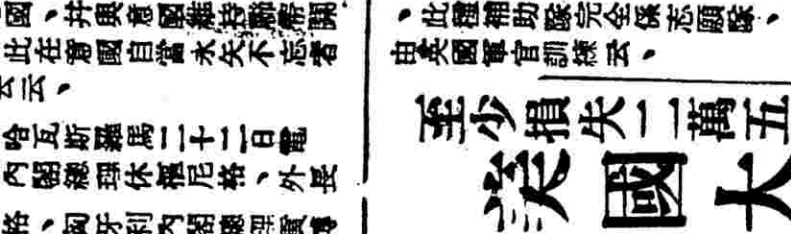 國、并與意國維持聯幣關
此在意國自當永矢不忘者
云云、
哈瓦斯羅馬二十二日電
內閣總理休樞尼格、外長
格、匈牙利內閣總理貢博
、此種補助隊完全係志願隊、
由英國軍官訓練云、
至少損失一二萬五
美國大